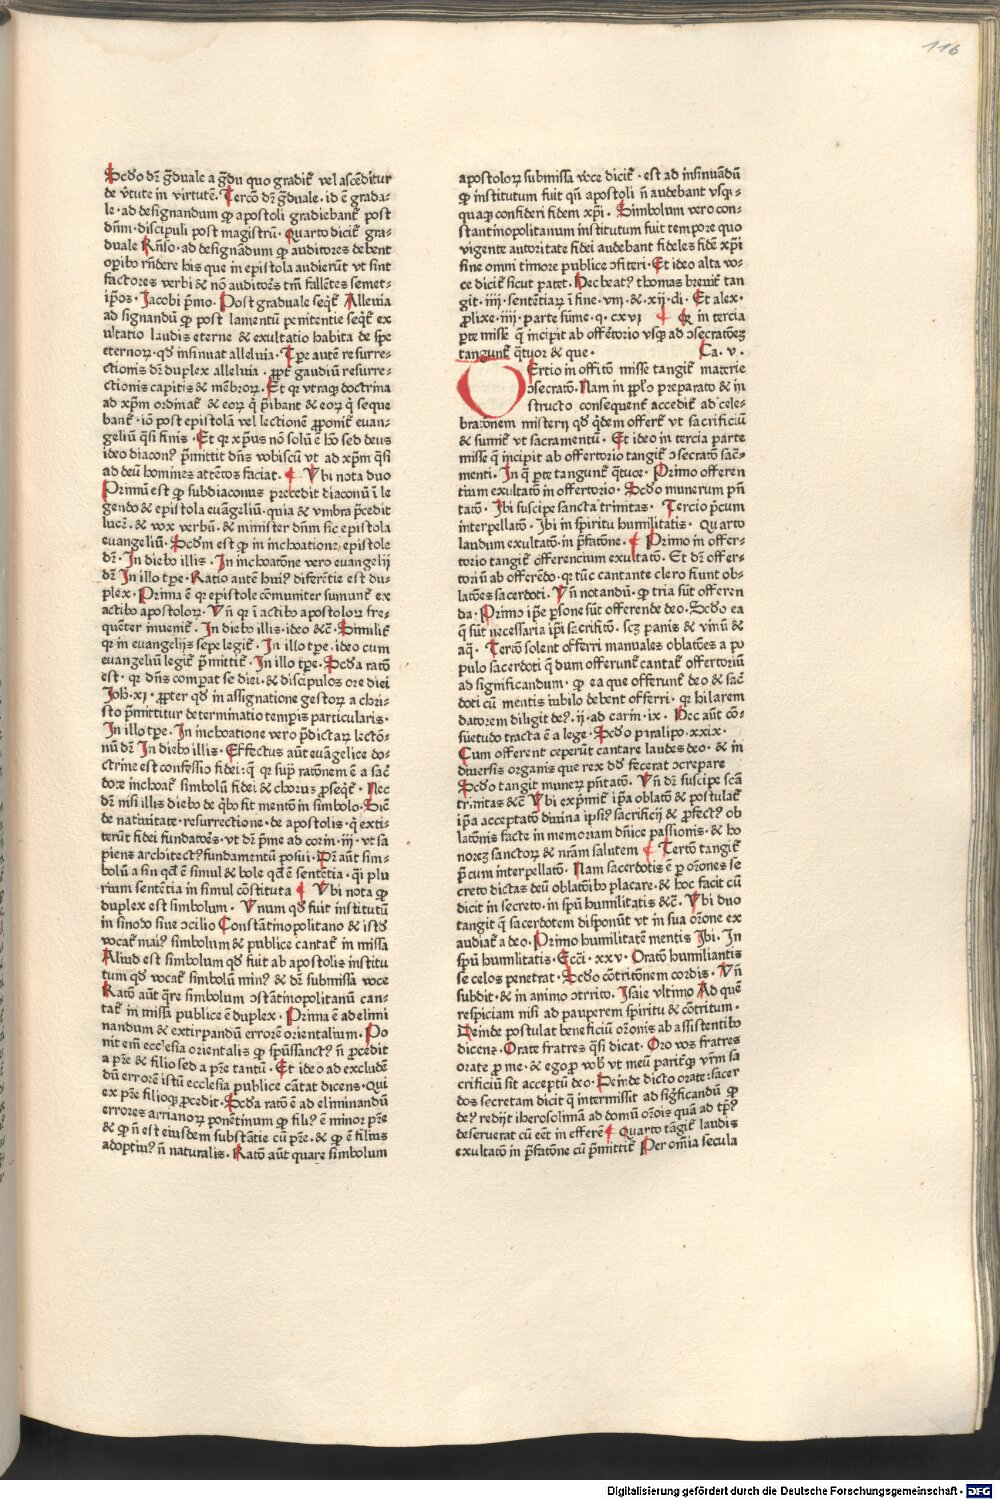 116
Scđo dr̄ g̃duale a g̃du quo gradit᷑ vel ascēditur
de v̄tute in virtutē. Tercō dr̄ g̃duale. id ē grada-
le. ad designandum ꝙ apostoli gradiebant᷑ post
dn̄m. discipuli post magistrū. Quarto dicit᷑ gra-
duale Rn̄so. ad designandum ꝙ auditores debent
oꝑibꝰ rn̄dere his que in epistola audierūt vt sint
factores verbi & nō auditores tm̄ fallētes semet-
ip̄os. Jacobi pmo. Post graduale seqt᷑ Alleluia
ad signandū ꝙ post lamentū penitentie seqt᷑ ex
ultatio laudis eterne & exultatio habita de spe
eternoꝝ. qđ insinuat alleluia. Tꝑe autē resurre-
ctionis dr̄ duplex alleluia. ꝓpt̄ gaudiū resurre-
ctionis capitis & mēbroꝝ. Et qꝛ vtraqꝫ doctrina
ad xp̄m ordinat᷑ & eoꝝ q̇ p̄ibant & eoꝝ q̇ seque
bant᷑. iō post epistolā vel lectionē ꝓponit᷑ euan-
geliū q̄si finis. Et qꝛ xp̄us nō solū ē hō sed deus
ideo diaconꝰ p̄mittit dn̄s vobiscū vt ad xp̄m q̄si
ad deū homines attētos faciat. ¶ Vbi nota duo
Primū est ꝙ subdiaconus precedit diaconū ī le
gendo & epistola euāgeliū. quia & vmbra p̄cedit
lucē. & vox verbū. & minister dn̄m sic epistola
euangeliū. Scđm est ꝙ in inchoatione epistole
dr̄. In diebꝰ illis. In inchoatōne vero euangelij
dr̄ In illo tꝑe. Ratio autē huiꝰ diferētie est du-
plex. Prima ē qꝛ epistole cōmuniter sumunt᷑ ex
actibꝰ apostoloꝝ. Vn̄ qꝛ ī actibꝰ apostoloꝝ fre-
quēter inuenit᷑. In diebꝰ illis. ideo &c̄. Similit᷑
qꝛ in euangelijs sepe legit᷑. In illo tꝑe. ideo cum
euangeliū legit᷑ p̄mittit᷑. In illo tꝑe. Scđa ratō
est. qꝛ dn̄s comꝑat se diei. & discipulos ore diei
Joh̄. xi. ꝓpter qđ in assignatione gestoꝝ a chri-
sto p̄mittitur determinatio tempis particularis.
In illo tꝑe. In inchoatione vero p̄dictaꝝ lectō-
nū dr̄ In diebꝰ illis. Effectus aūt euāgelice do-
ctrine est confessio fidei: q̄ qꝛ suꝑ ratōnem ē a sac̄
dote inchoat᷑ simbolū fidei & chorus ꝓseqt᷑. Nec
dr̄ nisi illis diebꝰ de qͥbꝰ fit mentō in simbolo. Sic̄
de natiuitate. resurrectione. de apostolis. q̇ exti-
terūt fidei fundatores. vt dr̄ pme ad corin. iij. vt sa
piens architectꝰ fundamentū posui. Dr̄ aūt sim-
bolū a sin qđ ē simul & bole qđ ē sentētia. q̄i plu
rium sentētia in simul cōstituta ¶ Vbi nota ꝙ
duplex est simbolum. Vnum qđ fuit institutū
in sinodo siue ↄcilio Constātinopolitano & istđ
vocat᷑ maiꝰ simbolum & publice cantat᷑ in missa
Aliud est simbolum qđ fuit ab apostolis institu
tum qđ vocat᷑ simbolū minꝰ & dr̄ submissa voce
Ratō aūt q̄re simbolum ↄstātinopolitanū can-
tat᷑ in missa publice ē duplex. Prima ē ad elimi
nandum & extirpandū errorē orientalium. Po
nit em̄ ecclesia orientalis ꝙ sp̄ussanctꝰ n̄ ꝓcedit
a p̄re & filio sed a p̄re tantū. Et ideo ad excludē
dū errorē istū ecclesia publice cātat dicens. Qui
ex p̄re filioqꝫ ꝓcedit. Scđa ratō ē ad eliminandū
errores arrianoꝝ ponētinum ꝙ filiꝰ ē minor p̄re
& ꝙ n̄ est eiusdem substātie cū p̄re. & ꝙ ē filius
adoptiuꝰ n̄ naturalis. Ratō aūt quare simbolum
apostoloꝝ submissa voce dicit᷑. est ad insinuādū
ꝙ institutum fuit qn̄ apostoli n̄ audebant vsqꝫ-
quaqꝫ confiteri fidem xp̄i. Simbolum vero con-
stantinopolitanum institutum fuit tempore quo
vigente autoritate fidei audebant fideles fidē xp̄i
sine omni timore publice ↄfiteri. Et ideo alta vo-
ce dicit᷑ sicut patet. Hec beatꝰ thomas breuit᷑ tan
git. iiij. sentētiaꝝ ī fine. viij. & xij. di. Et alex.
ꝓlixe. iiij. parte sūme. q. cxvi ¶ Qꝛ in tercia
ꝑte misse q̄ incipit ab offertorio vsqꝫ ad ↄsecratōeꝫ
tangunt᷑ q̄tuor & que. Ca. v.
Ertio in offitō misse tangit᷑ materie
ↄsecratō. Nam in ꝓp̄lo preparato & in
structo consequent᷑ accedit᷑ ad cele-
bratōnem misterij qđ q̇dem offert᷑ vt sacrificiū
& sumit᷑ vt sacramentū. Et ideo in tercia parte
misse q̄ incipit ab offertorio tangit᷑ ↄsecrato sac̄-
menti. In q̄ ꝑte tangunt᷑ q̄tuor. Primo offeren
tium exultatō in offertorio. Scđo munerum pn̄
tatō. Ibi suscipe sancta trinitas. Tercio p̄cum
interpellatō. Ibi in spiritu humilitatis. Quarto
laudum exultatō. in p̄fatōne. ¶ Primo in offer-
torio tangit᷑ offerencium exultatō. Et dr̄ offer-
toriū ab offerēdo. qꝛ tūc cantante clero fiunt ob-
latōes sacerdoti. Vn̄ notandū. ꝙ tria sūt offeren
da. Primo ip̄e ꝑsone sūt offerende deo. Scđo ea
q̄ sūt necessaria ip̄i sacrifitō. scꝫ panis & vinū &
aq̄. Tertō solent offerri manuales oblatōes a po
pulo sacerdoti q̄ dum offerunt᷑ cantat᷑ offertoriū
ad significandum. ꝙ ea que offerunt᷑ deo & sac̄
doti cū mentis iubilo debent offerri. qꝛ hilarem
datorem diligit deꝰ. ij. ad corin. ix. Hec aūt cō-
suetudo tracta ē a lege. Scđo paralipo. xxix.
Cum offerent ceperūt cantare laudes deo. & in
diuersis organis que rex dđ fecerat ↄcrepare
Scđo tangit muneꝝ pn̄tatō. Vn̄ dr̄ suscipe scā
trinitas &c̄ Vbi exp̄mit᷑ ip̄a oblatō & postulat᷑
ip̄a acceptatō diuina ipsiꝰ sacrificij & ꝓfectꝰ ob
latōnis facte in memoriam dn̄ice passionis. & ho
noreꝫ sanctoꝝ & nr̄am salutem ¶ Tertō tangit᷑
p̄cum interpellatō. Nam sacerdotis ē ꝑ or̄ones se
creto dictas deū oblatōibꝰ placare. & hoc facit cū
dicit in secreto. in sp̄u humilitatis &c̄. Vbi duo
tangit q̄ sacerdotem disponūt vt in sua or̄one ex
audiat᷑ a deo. Primo humilitatē mentis Ibi. In
sp̄u humilitatis. Ecci. xxv. Oratō humiliantis
se celos penetrat. Scđo cōtritōnem cordis. Vn̄
subdit. & in animo ↄtrito. Isaie vltimo Ad quē
respiciam nisi ad pauperem spiritu & cōtritum.
Deinde postulat beneficiū or̄onis ab assistentibꝰ
dicenz. Orate fratres q̄si dicat. Oro vos fratres
orate ꝓ me. & ego ꝓ vob̄ vt meū paritqꝫ vr̄m sa
crificiū sit acceptū deo. Deinde dicto orate: sacer
dos secretam dicit q̄ intermissit ad significandū ꝙ
deꝰ redijt iherosolimā ad domū or̄ois quā ad tp̄ꝰ
deseruerat cū eēt in effrē ¶ Quarto tāgit᷑ laudis
exultatō in p̄fatōne cū p̄mittit᷑ Per om̄ia secula
Digitalisierung gefördert durch die Deutsche Forschungsgemeinschaft - DFG